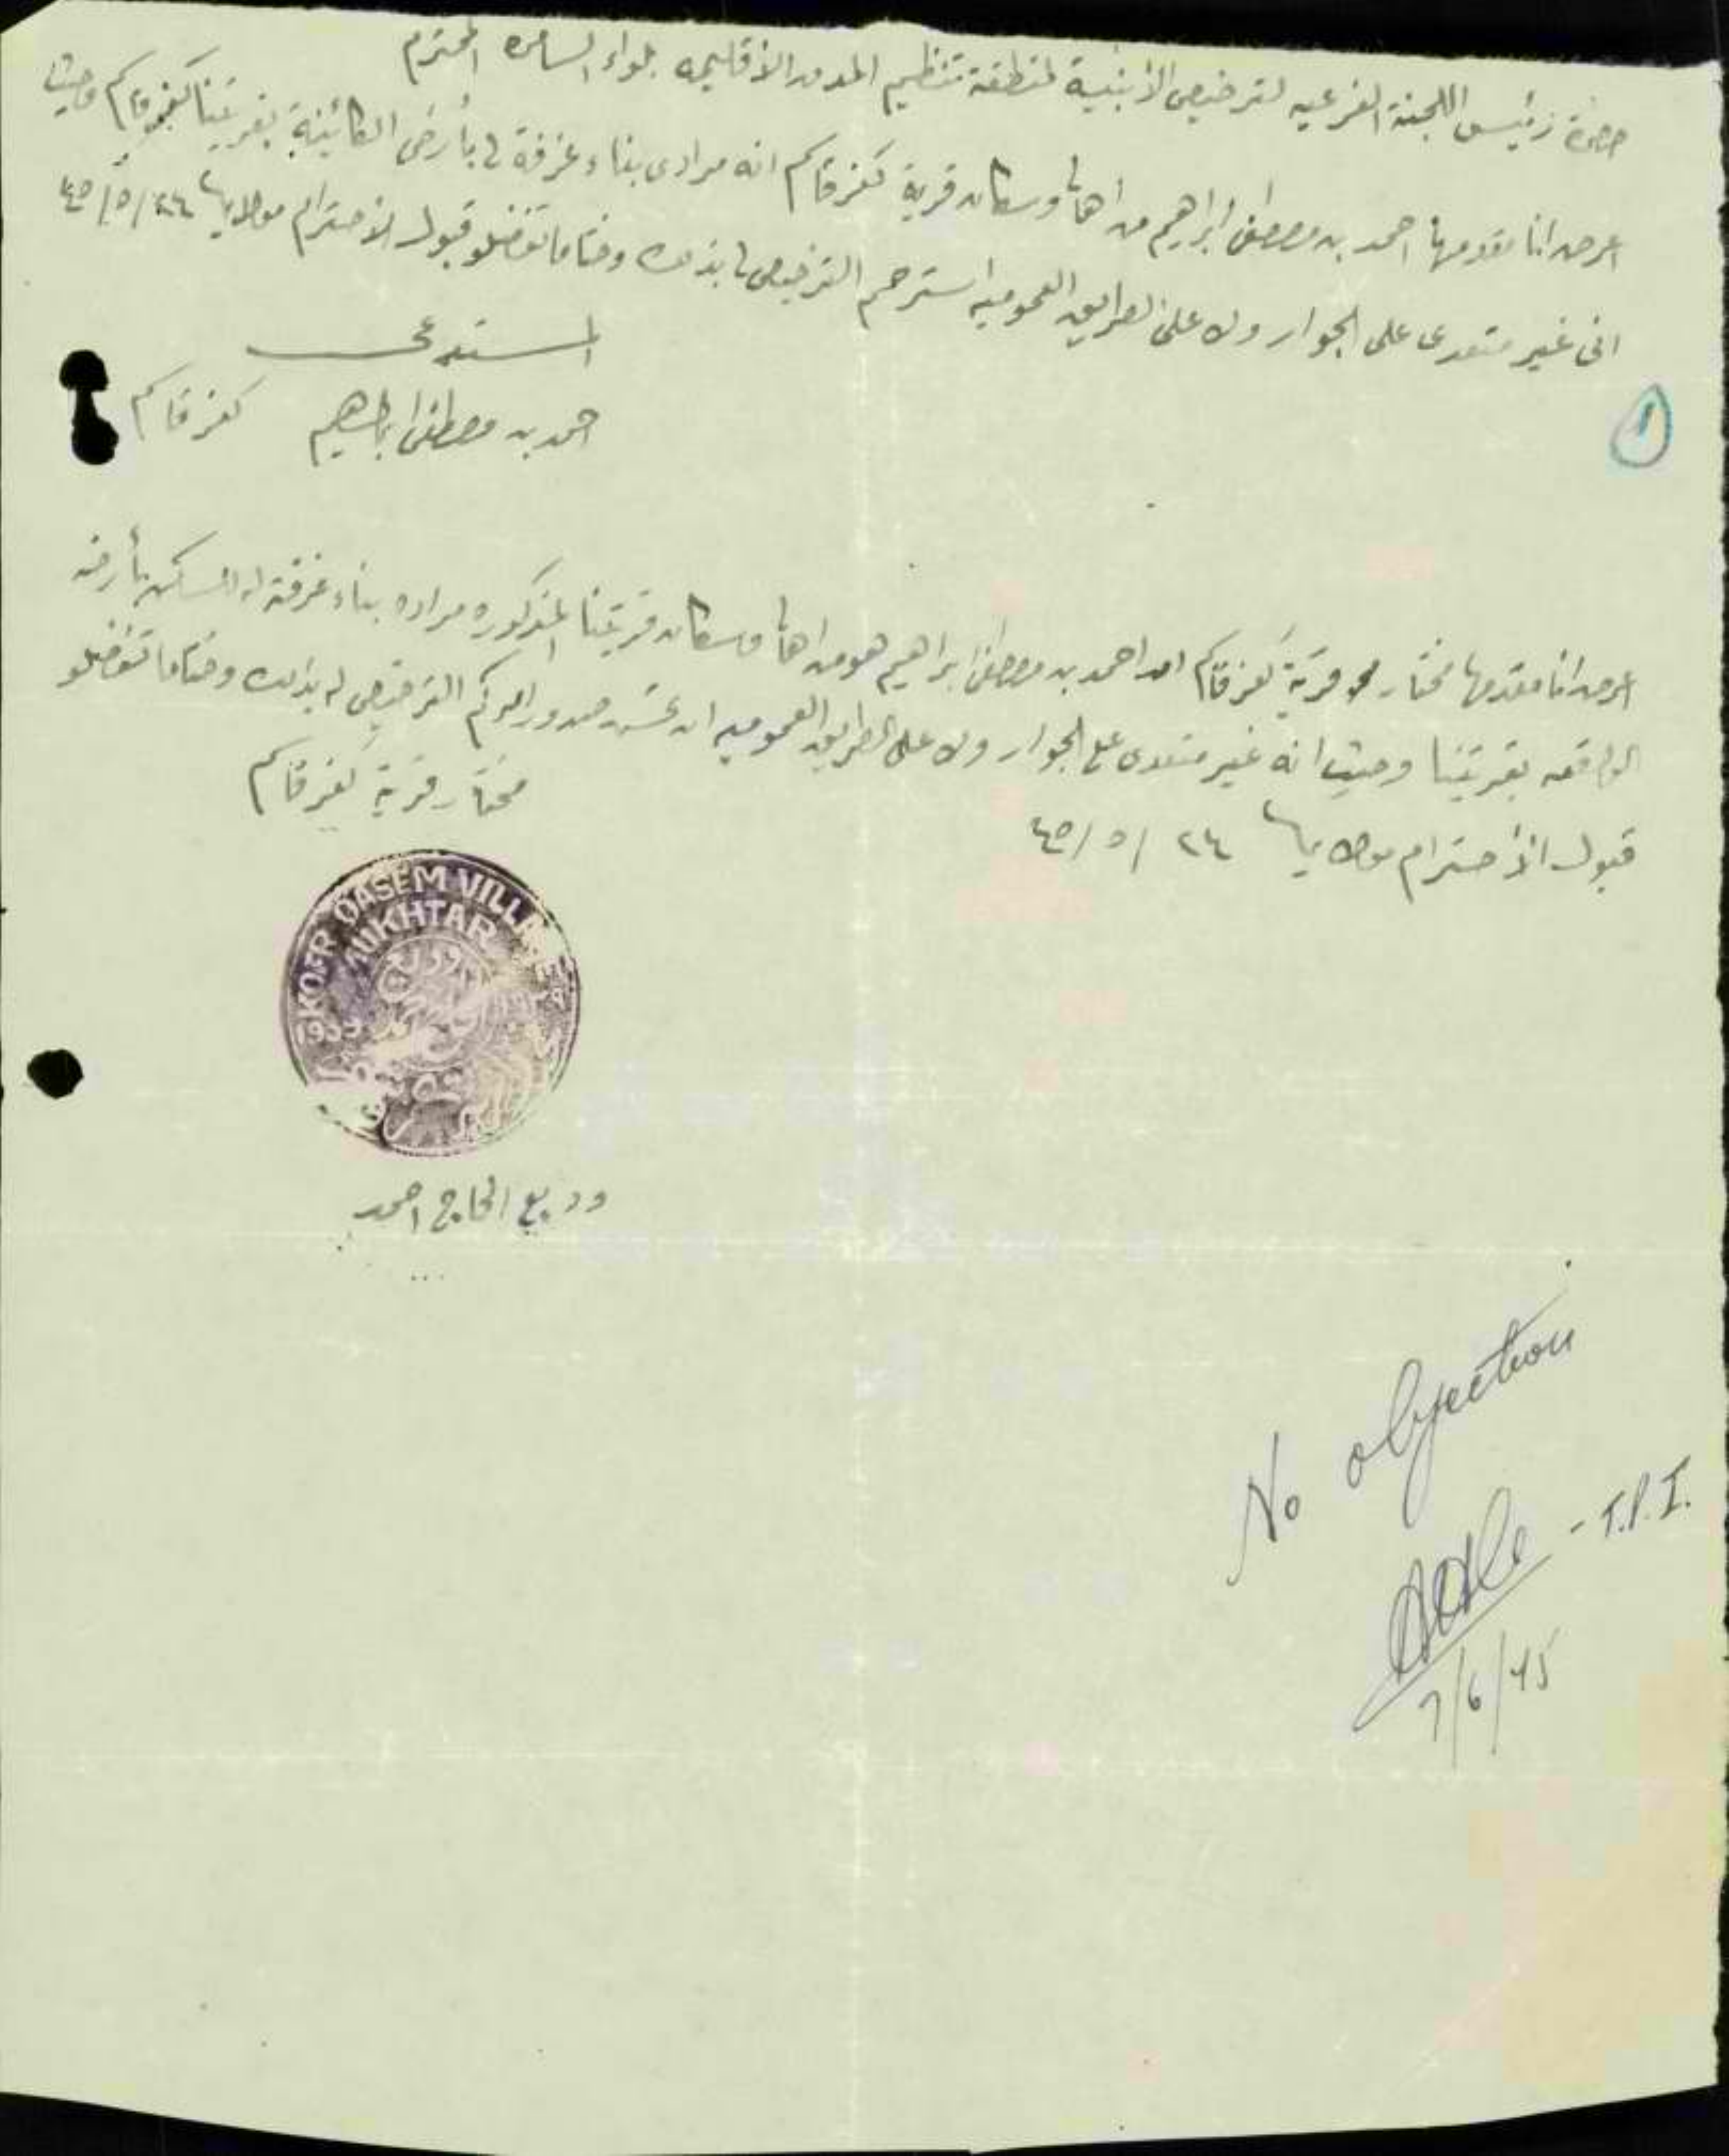 حضرة رئيس اللجنة الفرعيه لترخيص الأبنية لمنطقة تنظيم المدن الأقليميه بلواء السامره المحترم
اعرض انا مقدمها احمد بن مصطفى ابراهيم من اهالي وسكان قرية كفرقاسم انه مرادى بناء غرفة لي بأرضى الكائينة بقريتنا كفرقاسم وحيث
انى غير متعدى على الجوار ولا على الطرايق العموميه استرحم الترخيص لي بذلك وختاما تفضلو قبول الأحترام مولاي ٢٤/٥/٤٥
المستدعى
احمد بن مصطفى ابراهيم كفر قاسم
١
اعرض انا مقدمها مختار قرية كفرقاسم ان احمد بن مصطفى ابراهيم هو من اهالي وسكان قريتنا المذكوره مراده بناء غرفة له للسكن بأرضه
الواقعه بقريتنا وحيث انه غير متعدى على الجوار ولا على الطرايق العموميه صدور امركم الترخيص له بذلك وختاما تفضلو
قبول الأحترام مولاي ٢٤/٥/٤٥
مختار قرية كفرقاسم
KOFR QASEM VILLAGE
MUKHTAR
وديع الحاج احمد
No objection
- T.P.I.
7/6/45